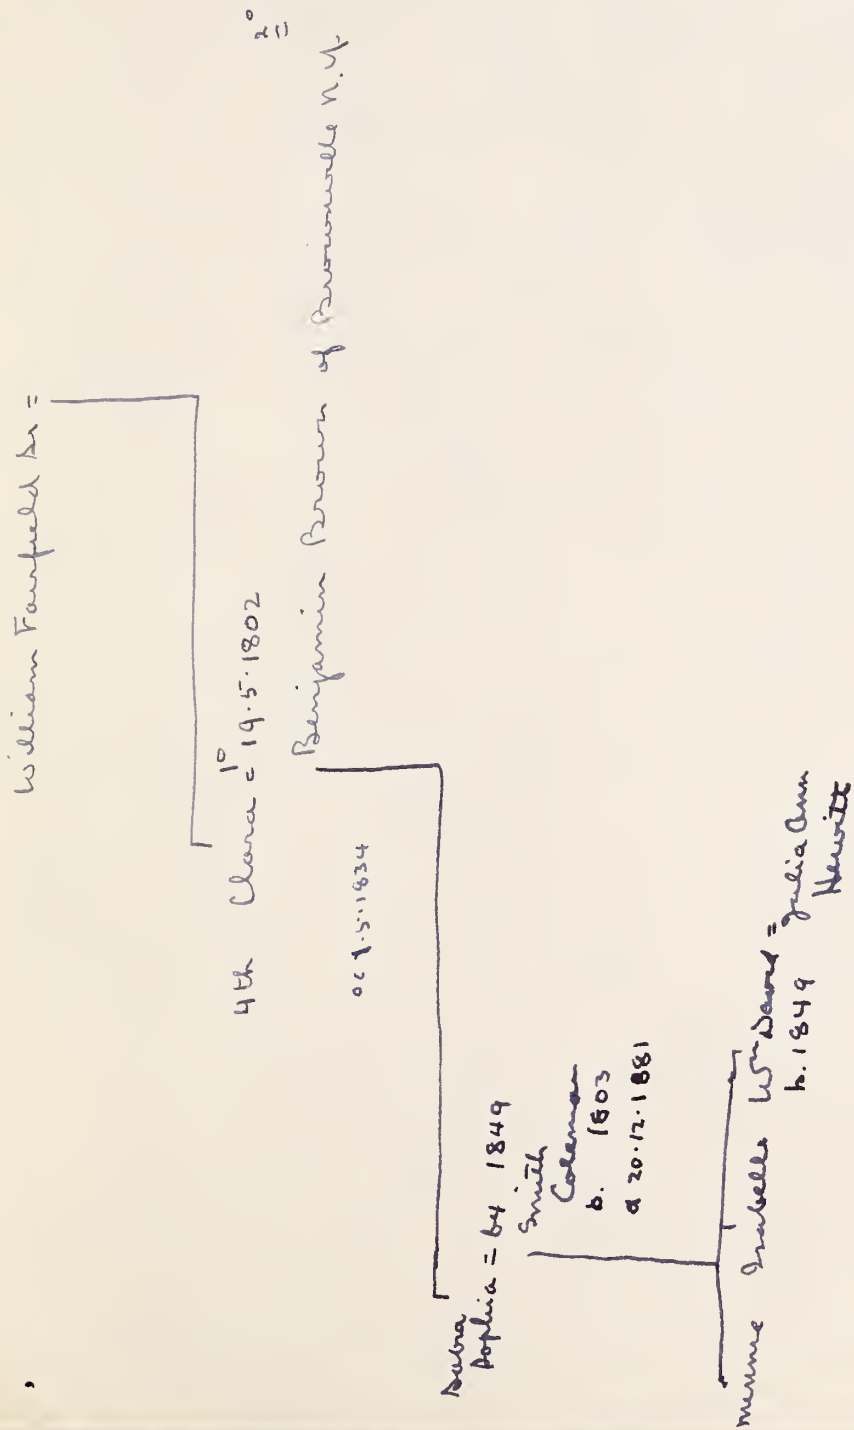 William Fairfield Sr =
4th Clara = 1° 19.5.1802
2° =
Benjamin Brown of Brownville N.Y.
1.5.1834
Sabra
Sophia = by 1849
Smith
Coleman
b. 1803
d 20.12.1881
Minnie Isabelle Wm David = Julia Ann
b. 1849 Hewitt